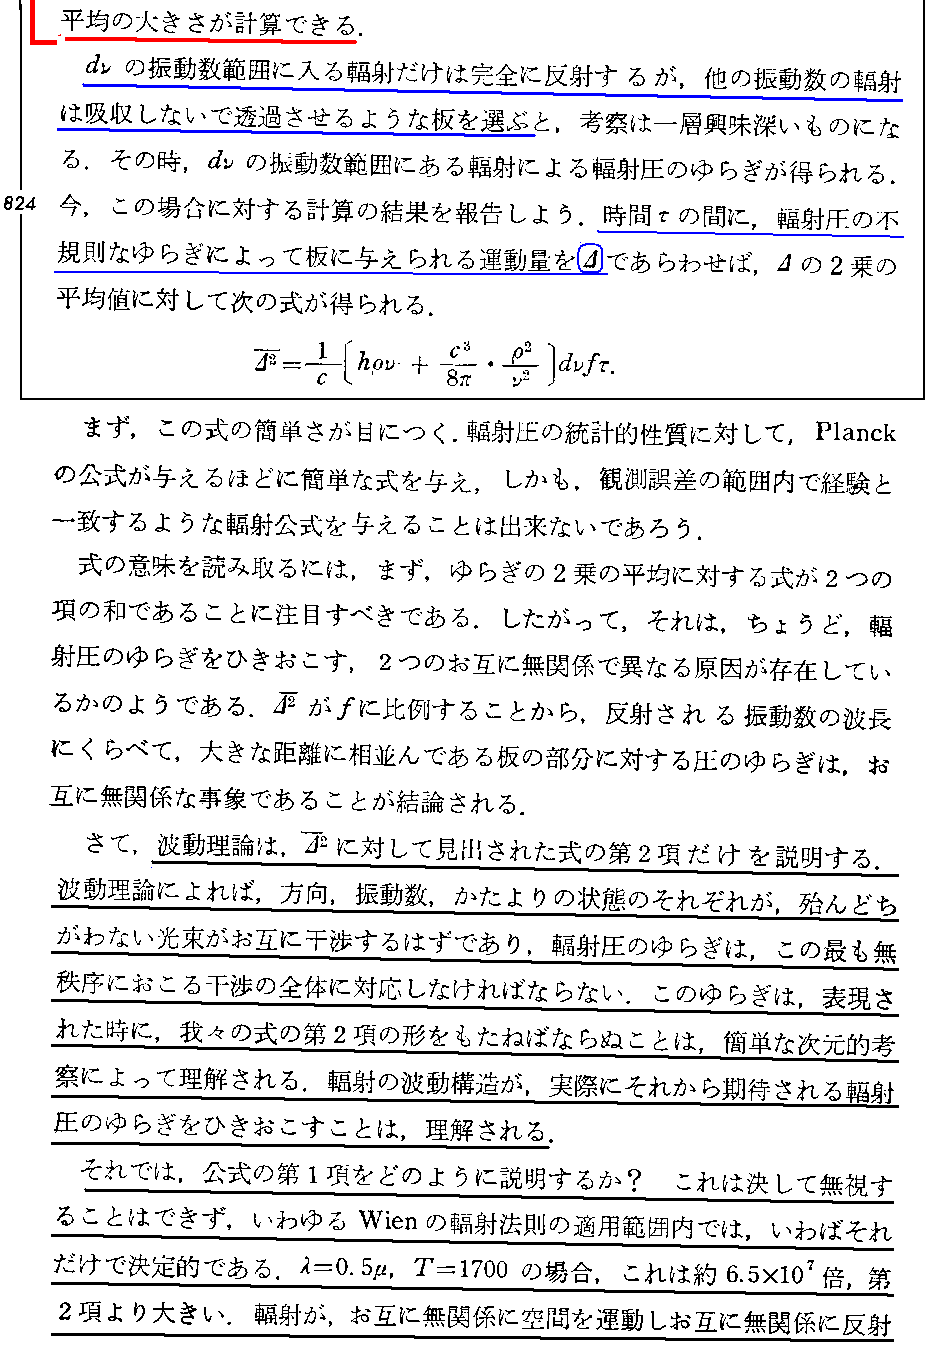 平均の大きさが計算できる.
dν の振動数範囲に入る輻射だけは完全に反射するが，他の振動数の輻射
は吸収しないで透過させるような板を選ぶと，考察は一層興味深いものにな
る．その時，dν の振動数範囲にある輻射による輻射圧のゆらぎが得られる．
824
今，この場合に対する計算の結果を報告しよう．時間 τ の間に，輻射圧の不
規則なゆらぎによって板に与えられる運動量を Δ であらわせば，Δ の2乗の
平均値に対して次の式が得られる．
\overline{Δ²} = 1/c [hρν + c³/8π · ρ²/ν²] dνfτ.
まず，この式の簡単さが目につく．輻射圧の統計的性質に対して，Planck
の公式が与えるほどに簡単な式を与え，しかも，観測誤差の範囲内で経験と
一致するような輻射公式を与えることは出来ないであろう．
式の意味を読み取るには，まず，ゆらぎの2乗の平均に対する式が2つの
項の和であることに注目すべきである．したがって，それは，ちょうど，輻
射圧のゆらぎをひきおこす，2つのお互に無関係で異なる原因が存在してい
るかのようである．\overline{Δ²} が f に比例することから，反射される振動数の波長
にくらべて，大きな距離に相並んである板の部分に対する圧のゆらぎは，お
互に無関係な事象であることが結論される．
さて，波動理論は，\overline{Δ²} に対して見出された式の第2項だけを説明する．
波動理論によれば，方向，振動数，かたよりの状態のそれぞれが，殆んどち
がわない光束がお互に干渉するはずであり，輻射圧のゆらぎは，この最も無
秩序におこる干渉の全体に対応しなければならない．このゆらぎは，表現さ
れた時に，我々の式の第2項の形をもたねばならぬことは，簡単な次元的考
察によって理解される．輻射の波動構造が，実際にそれから期待される輻射
圧のゆらぎをひきおこすことは，理解される．
それでは，公式の第1項をどのように説明するか？ これは決して無視す
ることはできず，いわゆる Wien の輻射法則の適用範囲内では，いわばそれ
だけで決定的である．λ=0.5μ，T=1700 の場合，これは約 6.5×10⁷ 倍，第
2項より大きい．輻射が，お互に無関係に空間を運動しお互に無関係に反射